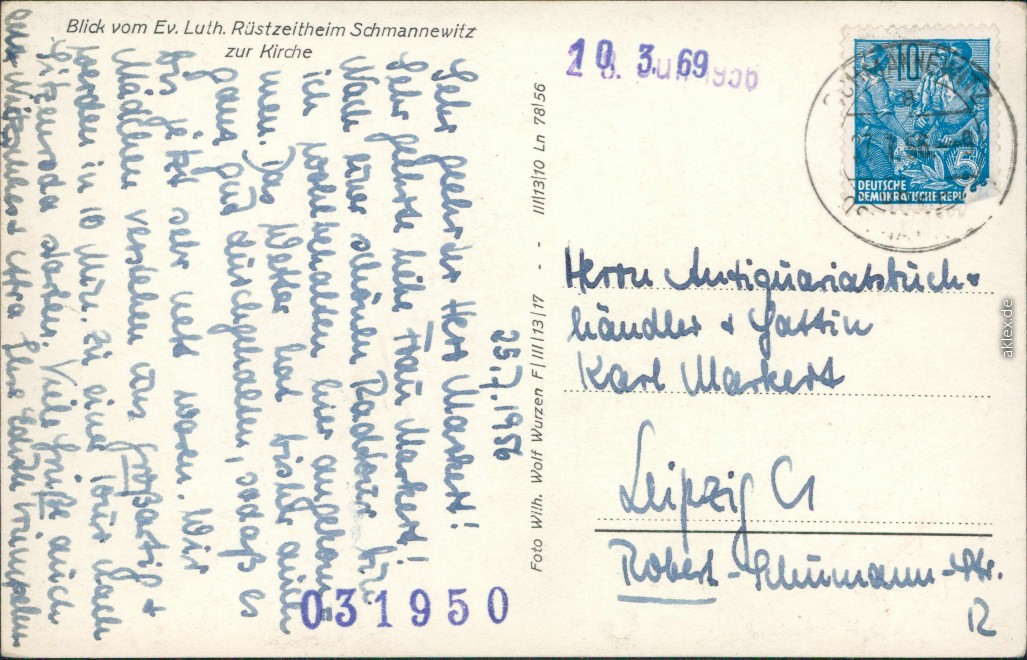 Blick vom Ev. Luth. Rüstzeitheim Schmannewitz
zur Kirche
25.7.1956
Sehr geehrter Herr Markert!
Sehr geehrte liebe Frau Markert!
Nach einer schönen Radtour bin
ich wohlbehalten hier angekom-
men. Das Wetter hat bisher auch
ganz gut durchgehalten, sodaß es
bis jetzt sehr nett war. Wir
Mädchen verstehen uns großartig +
werden in 10 Min. zu einer Tour nach
Sitzenroda starten. Viele Grüße auch
Ihre Edith
Foto Wilh. Wolf Wurzen F/III/13/17 - - III/13/10 Ln 78/56
10. 3. 69
1956
10
5
DEUTSCHE
DEMOKRATISCHE REPU
Herrn Antiquariatsbuch-
händler + Gattin
Karl Markert
Leipzig C1
Robert-Schumann-Str.
12
031950
aklex.de